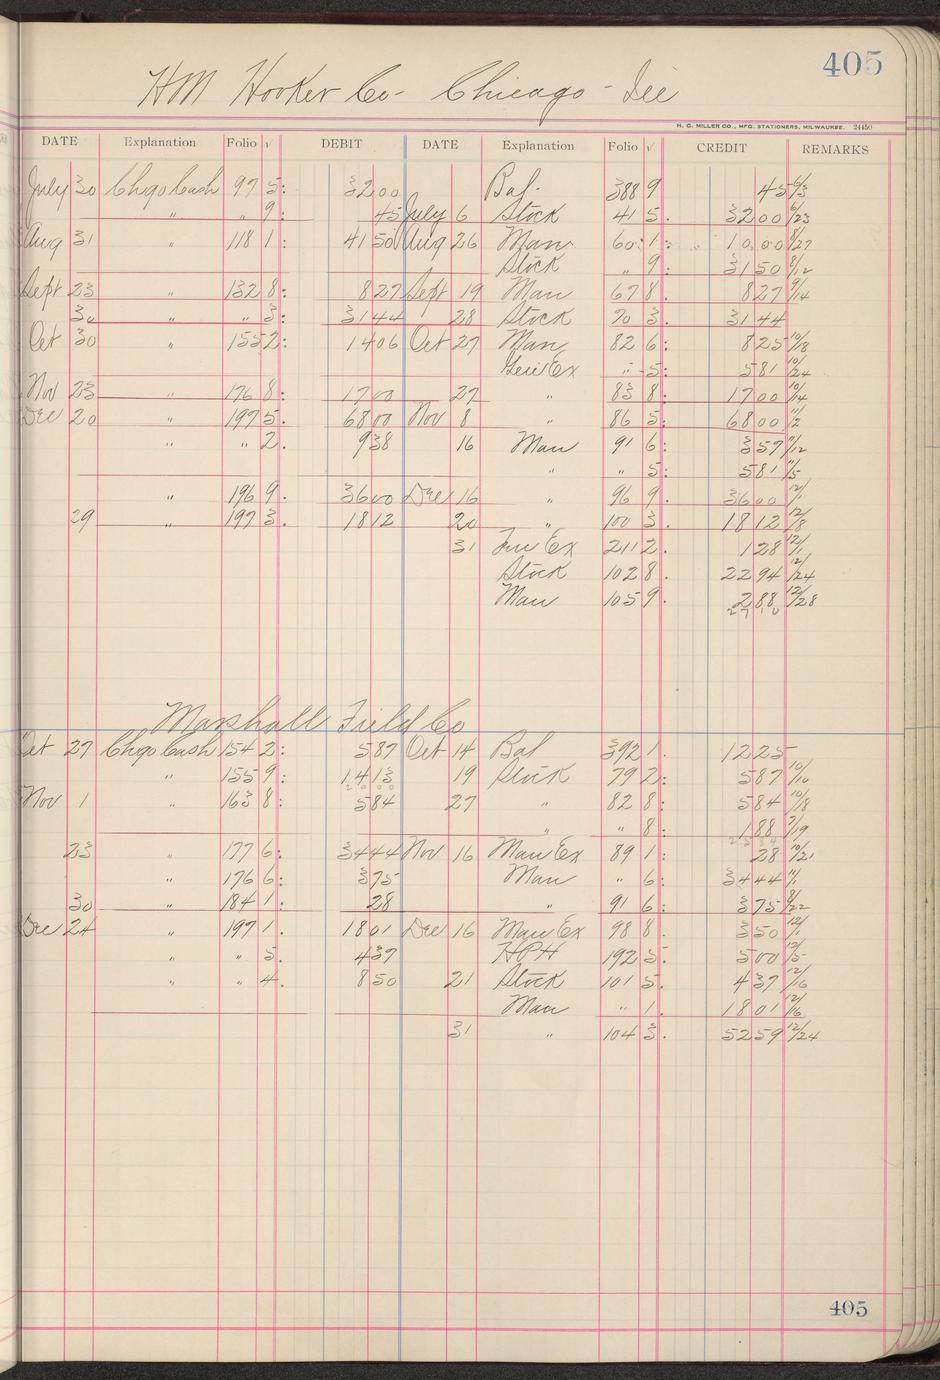 405
HM Hooker Co - Chicago - Ill
H. G. MILLER CO., MFG. STATIONERS, MILWAUKEE. 24450
DATE Explanation Folio √ DEBIT DATE Explanation Folio √ CREDIT REMARKS
July 30 Chgo Cash 97 5: 32 00 Bal - 388 9 45 6/3
" " 9: 45 July 6 Stock 41 5. 32 00 6/23
Aug 31 " 118 1: 41 50 Aug 26 Man 60 1: 10 00 8/27
Stock " 9: 31 50 8/12
Sept 23 " 132 8: 8 27 Sept 19 Man 67 8. 8 27 9/14
30 " " 3: 31 44 28 Stock 70 3. 31 44
Oct 30 " 155 2: 14 06 Oct 27 Man 82 6: 8 25 10/18
Gen Ex " 5: 5 81 10/24
Nov 23 " 176 8: 17 00 27 " 83 8: 17 00 10/14
Dec 20 " 197 5. 68 00 Nov 8 " 86 5: 68 00 11/2
" " 2. 9 38 16 Man 91 6: 3 57 11/12
" " 5: 5 81 11/5
" 196 9. 36 00 Dec 16 " 96 9. 36 00 12/1
29 " 197 3. 18 12 20 " 100 3. 18 12 12/8
31 Ex 211 2. 1 28 12/1
Stock 102 8. 22 94 12/24
Man 105 9. 2 88 12/28
27 10
Marshall Field Co
Oct 27 Chgo Cash 154 2: 5 87 Oct 14 Bal 392 1. 12 25
" 155 9: 14 13 19 Stock 79 2: 5 87 10/10
20 00
Nov 1 " 163 8: 5 84 27 " 82 8: 5 84 10/18
" " 8: 1 88 7/19
23 " 177 6: 34 44 Nov 16 Man Ex 89 1: 28 10/21
" 176 6: 3 75 Man " 6: 34 44 11/1
30 " 184 1. 28 " 91 6: 3 75 8/22
Dec 24 " 197 1. 18 01 Dec 16 Man Ex 98 8. 3 50 12/1
" " 5. 4 37 HPH 192 5. 5 00 12/5
" " 4. 8 50 21 Stock 101 5. 4 37 12/16
Man " 1. 18 01 12/6
31 " 104 3. 52 59 12/24
405